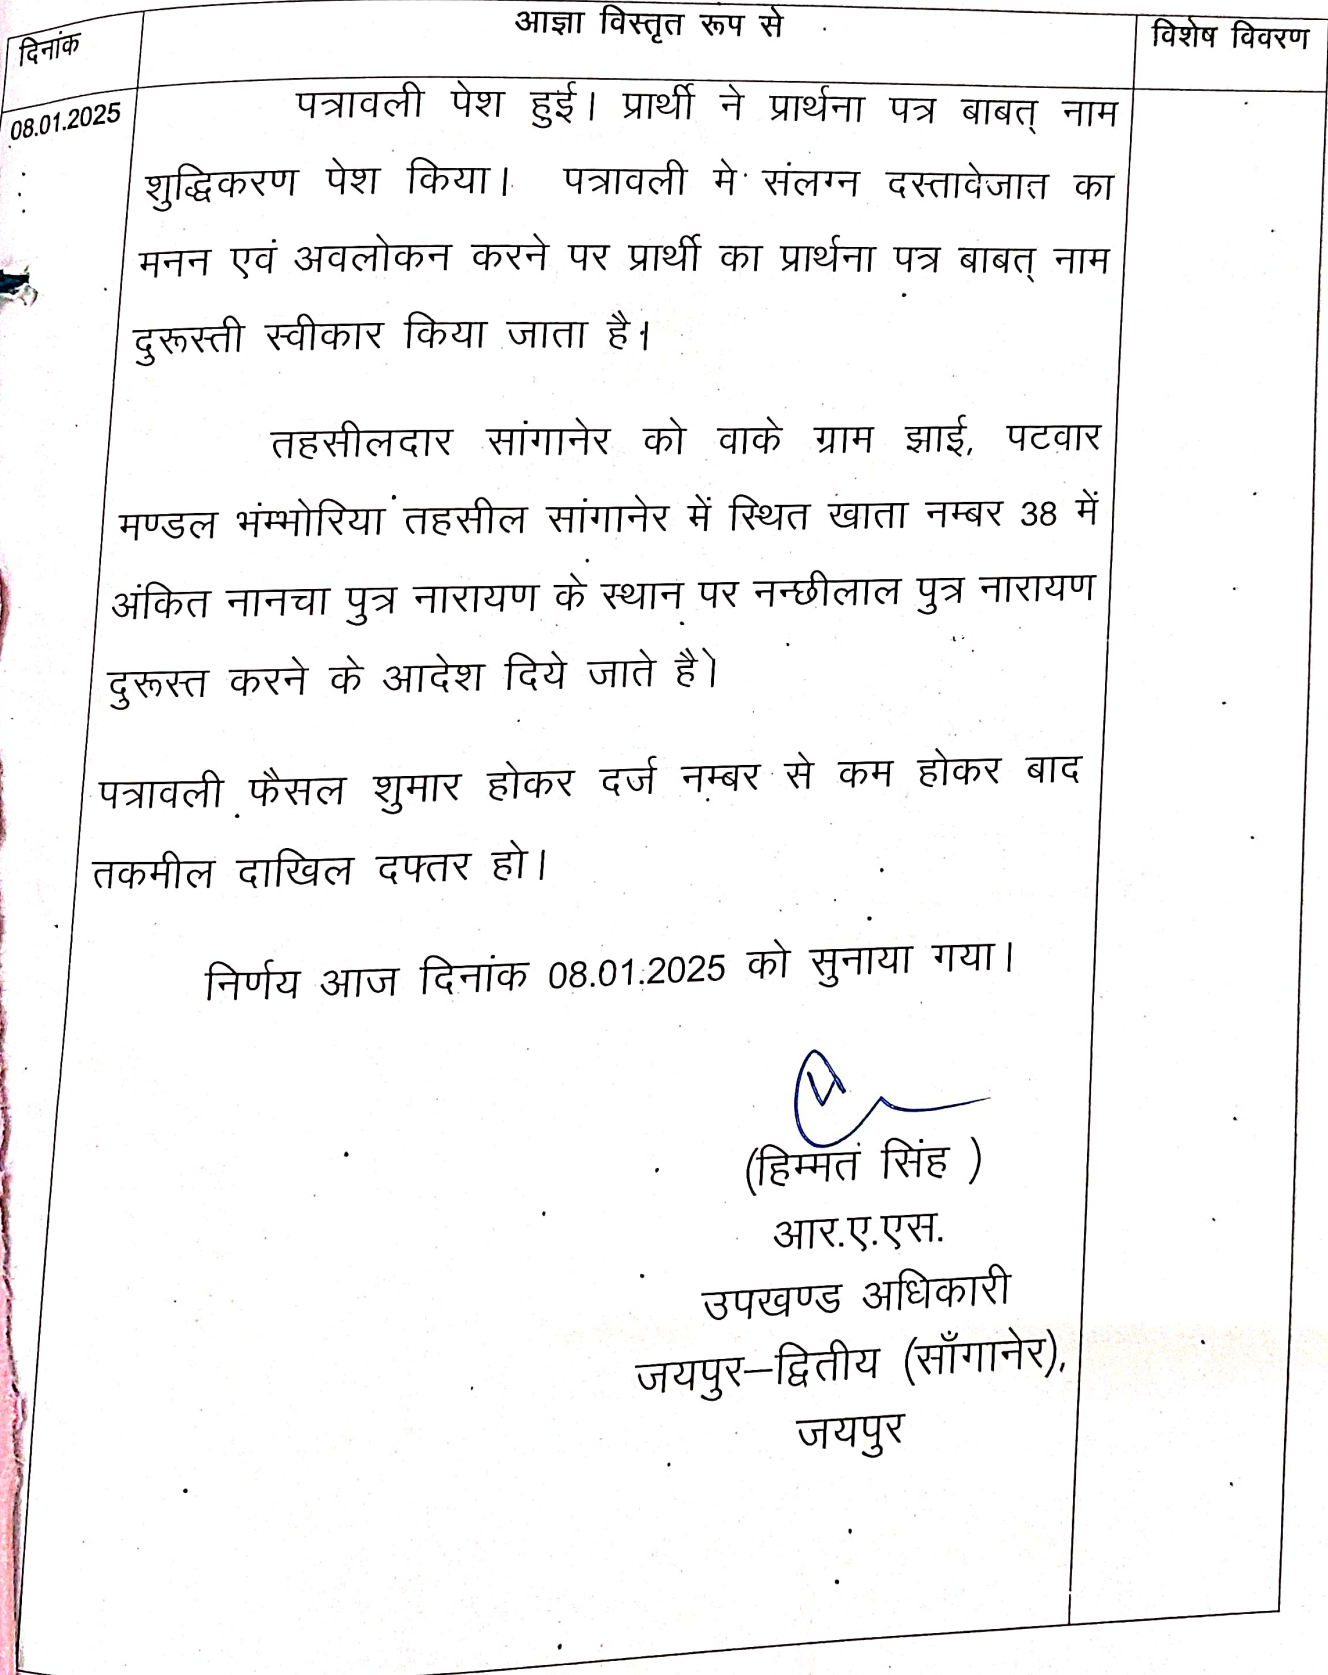 दिनांक
आज्ञा विस्तृत रूप से
विशेष विवरण
08.01.2025
पत्रावली पेश हुई। प्रार्थी ने प्रार्थना पत्र बाबत् नाम
शुद्धिकरण पेश किया। पत्रावली मे संलग्न दस्तावेजात का
मनन एवं अवलोकन करने पर प्रार्थी का प्रार्थना पत्र बाबत् नाम
दुरूस्ती स्वीकार किया जाता है।
तहसीलदार सांगानेर को वाके ग्राम झाई, पटवार
मण्डल भंम्भोरिया तहसील सांगानेर में स्थित खाता नम्बर 38 में
अंकित नानचा पुत्र नारायण के स्थान पर नन्छीलाल पुत्र नारायण
दुरूस्त करने के आदेश दिये जाते है।
पत्रावली फैसल शुमार होकर दर्ज नम्बर से कम होकर बाद
तकमील दाखिल दफ्तर हो।
निर्णय आज दिनांक 08.01.2025 को सुनाया गया।
(हिम्मत सिंह )
आर.ए.एस.
उपखण्ड अधिकारी
जयपुर–द्वितीय (साँगानेर),
जयपुर